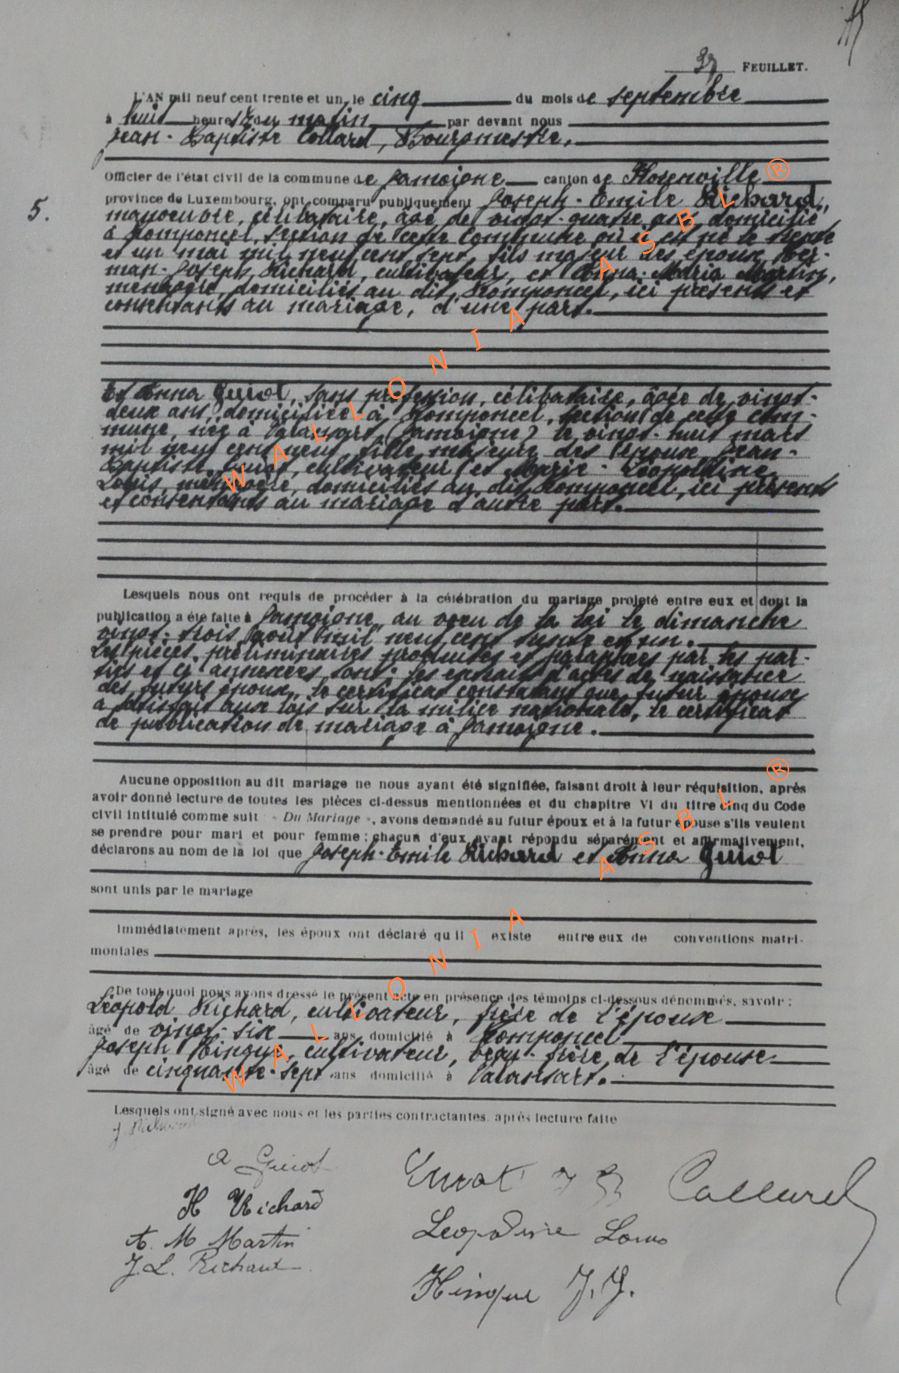 37 FEUILLET.
L'AN mil neuf cent trente et un, le cinq du mois de septembre
à huit heures du matin par devant nous
Jean-Baptiste Collard, Bourgmestre,
Officier de l'état civil de la commune de Jamoigne canton de Florenville
5.
province de Luxembourg, ont comparu publiquement Joseph-Emile Richard,
manoeuvre, célibataire, âgé de vingt-quatre ans, domicilié
à Romponcel, section de cette commune où il est né le trente
et un mai mil neuf cent sept, fils majeur des époux Her-
man-Joseph Richard, cultivateur, et Anna-Maria Martin,
ménagère, domiciliés au dit Romponcel, ici présents et
consentants au mariage, d'une part.
Et Anna Guiot, sans profession, célibataire, âgée de vingt-
deux ans, domiciliée à Romponcel, section de cette com-
mune, née à Valansart (Jamoigne) le vingt-huit mars
mil neuf cent neuf, fille majeure des époux Jean-
Baptiste Guiot, cultivateur, et Marie-Léopoldine
Louis, ménagère, domiciliés au dit Romponcel, ici présents
et consentants au mariage d'autre part.
Lesquels nous ont requis de procéder à la célébration du mariage projeté entre eux et dont la
publication a été faite à Jamoigne, au voeu de la loi le dimanche
vingt-trois août mil neuf cent trente et un.
Les pièces préliminaires produites et paraphées par les par-
ties et ci annexées, sont: les extraits d'actes de naissance
des futurs époux, le certificat constatant que futur époux
a satisfait aux lois sur la milice nationale, le certificat
de publication de mariage à Jamoigne.
Aucune opposition au dit mariage ne nous ayant été signifiée, faisant droit à leur réquisition, après
avoir donné lecture de toutes les pièces ci-dessus mentionnées et du chapitre VI du titre cinq du Code
civil intitulé comme suit « Du Mariage », avons demandé au futur époux et à la future épouse s'ils veulent
se prendre pour mari et pour femme; chacun d'eux ayant répondu séparément et affirmativement,
déclarons au nom de la loi que Joseph-Emile Richard et Anna Guiot
sont unis par le mariage
Immédiatement après, les époux ont déclaré qu'il existe entre eux de conventions matri-
moniales
De tout quoi nous avons dressé le présent acte en présence des témoins ci-dessous dénommés, savoir:
Léopold Richard, cultivateur, frère de l'épouse
âgé de vingt-six ans domicilié à Romponcel
Joseph Hinque, cultivateur, beau-frère de l'épouse
âgé de cinquante-sept ans domicilié à Valansart.
Lesquels ont signé avec nous et les parties contractantes, après lecture faite
J Richard
A Guiot
Guiot J B Collard
H Richard
Leopoldine Louis
A. M Martin
J. L. Richard
Hinque J. J.
WALLONIA ASBL ®
WALLONIA ASBL ®